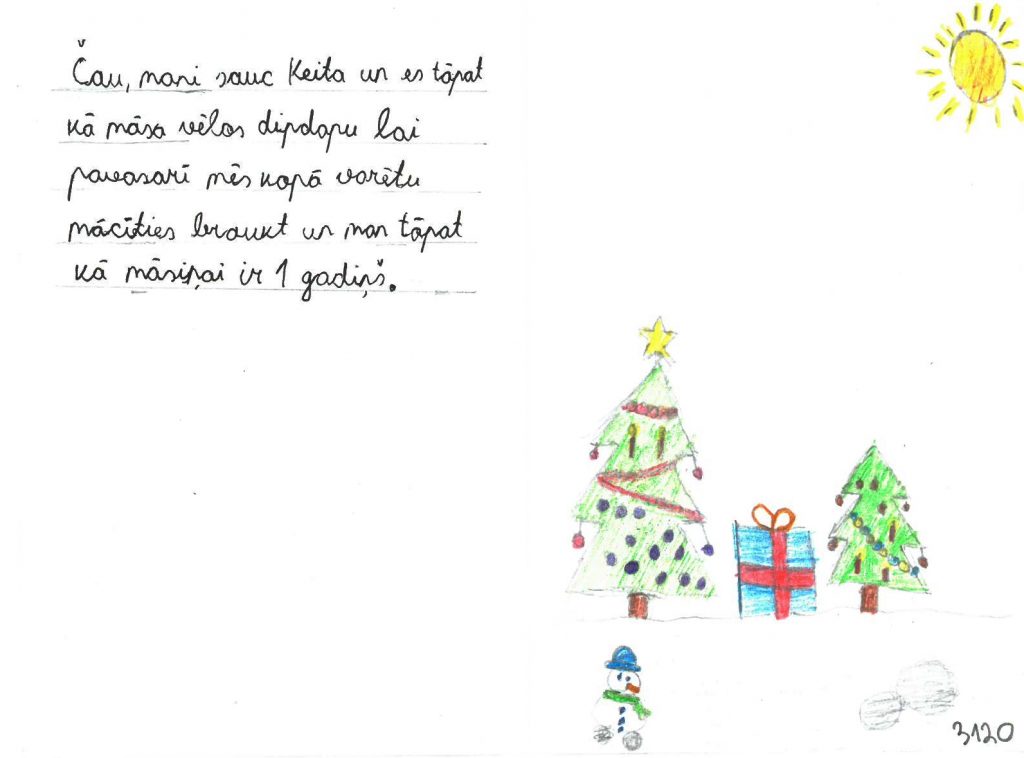 Čau, mani sauc Keita un es tāpat
kā māsa vēlos dipdapu lai
pavasarī mēs kopā varētu
mācīties braukt un man tāpat
kā māsiņai ir 1 gadiņš.
3120